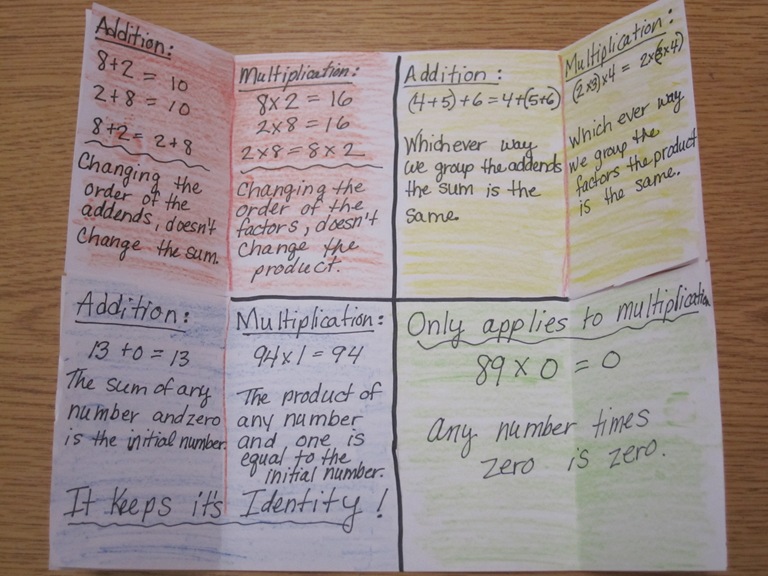 Addition:
8+2 = 10
2+8 = 10
8+2 = 2+8
Changing the
order of the
addends, doesn't
Change the sum.
Multiplication:
8x2 = 16
2x8 = 16
2x8 = 8x2
Changing the
order of the
factors, doesn't
Change the
product.
Addition:
(4+5)+6=4+(5+6)
Whichever way
we group the addends
the sum is the
same.
Multiplication:
(2x3)x4 = 2x(3x4)
Which ever way
we group the
factors the product
is the same.
Addition:
13 +0 = 13
The sum of any
number and zero
is the initial number.
Multiplication:
94x1 = 94
The product of
any number
and one is
equal to the
initial number.
It Keeps it's Identity!
Only applies to multiplication
89 x 0 = 0
any number times
zero is zero.